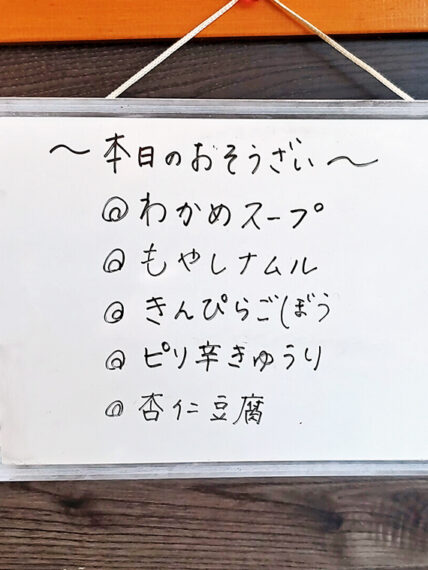 〜本日のおそうざい〜
◎わかめスープ
◎もやしナムル
◎きんぴらごぼう
◎ピリ辛きゅうり
◎杏仁豆腐